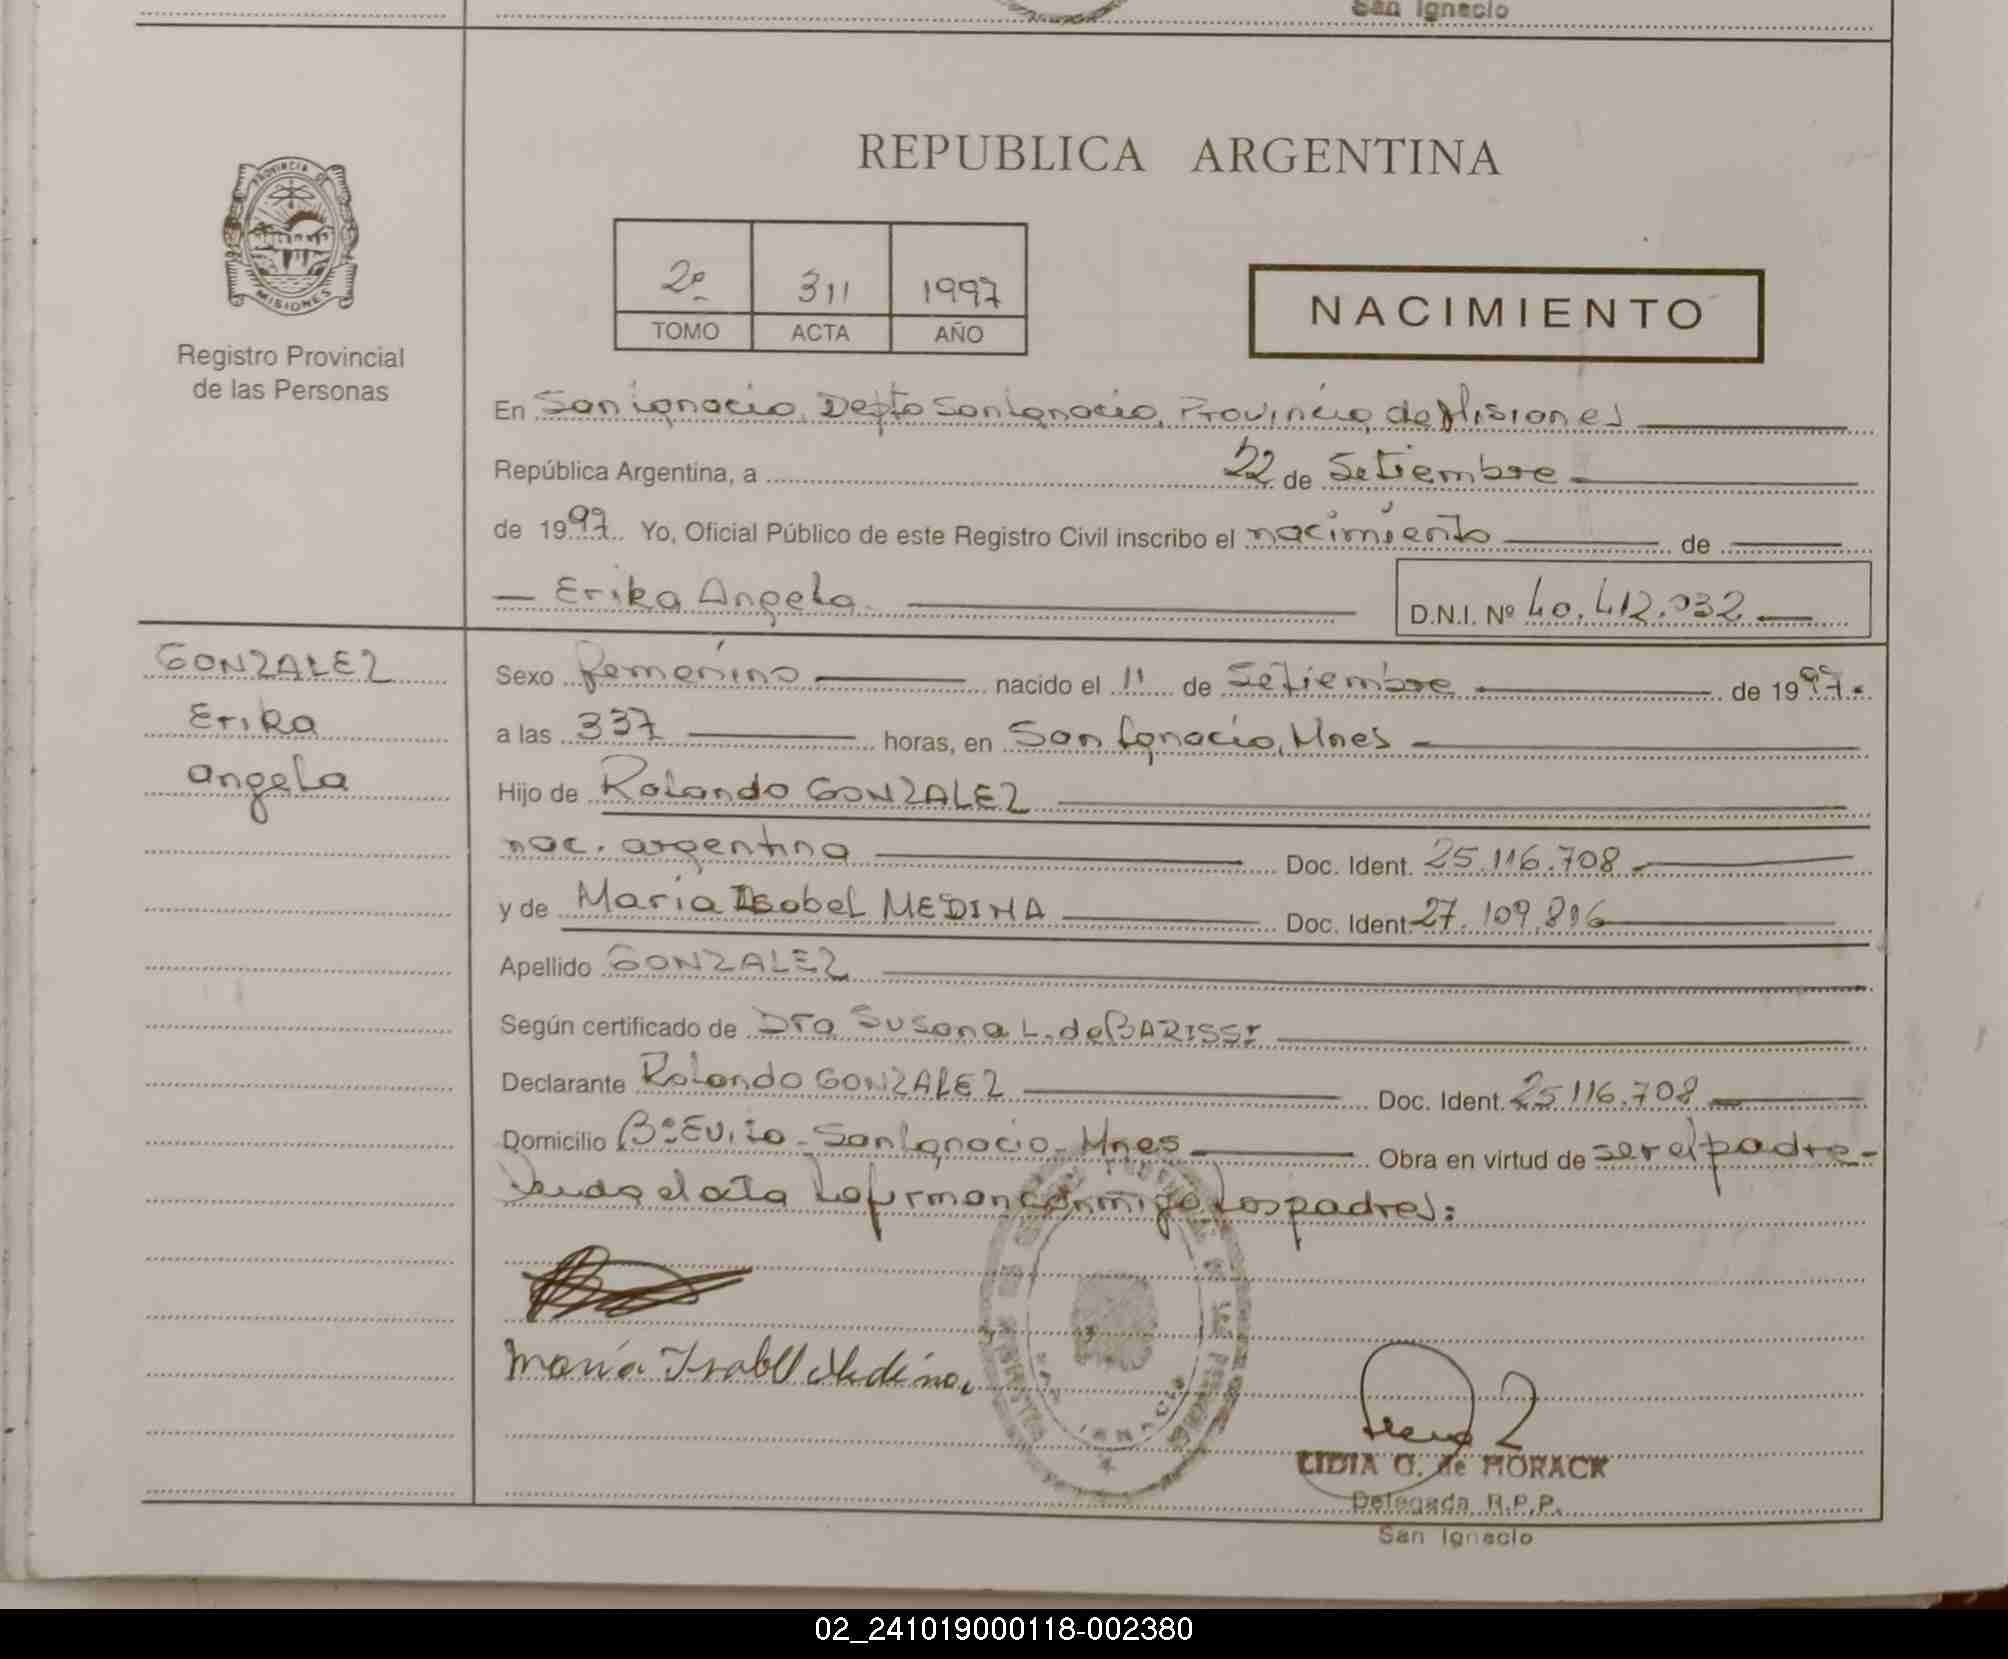 San Ignacio
REPUBLICA ARGENTINA
PROVINCIA DE
MISIONES
Registro Provincial
de las Personas
2º 311 1997
TOMO ACTA AÑO
NACIMIENTO
En San Ignacio, Depto San Ignacio, Provincia de Misiones
República Argentina, a 22 de Setiembre
de 1997. Yo, Oficial Público de este Registro Civil inscribo el nacimiento de
Erika Angela. D.N.I. Nº 40.412.032
GONZALEZ
Erika
Angela
Sexo femenino nacido el 11 de Setiembre de 1997.
a las 337 horas, en San Ignacio, Mnes
Hijo de Rolando GONZALEZ
nac. argentina Doc. Ident. 25.116.708
y de Maria Isabel MEDINA Doc. Ident. 27.109.896
Apellido GONZALEZ
Según certificado de Dra Susana L. de BARISSI
Declarante Rolando GONZALEZ Doc. Ident. 25.116.708
Domicilio Bº Evita - San Ignacio - Mnes Obra en virtud de ser el padre -
Leida el acta la firman conmigo los padres:
Maria Isabel Medina
SAN IGNACIO
LIDIA G. de MORACK
Delegada R.P.P.
San Ignacio
02_241019000118-002380